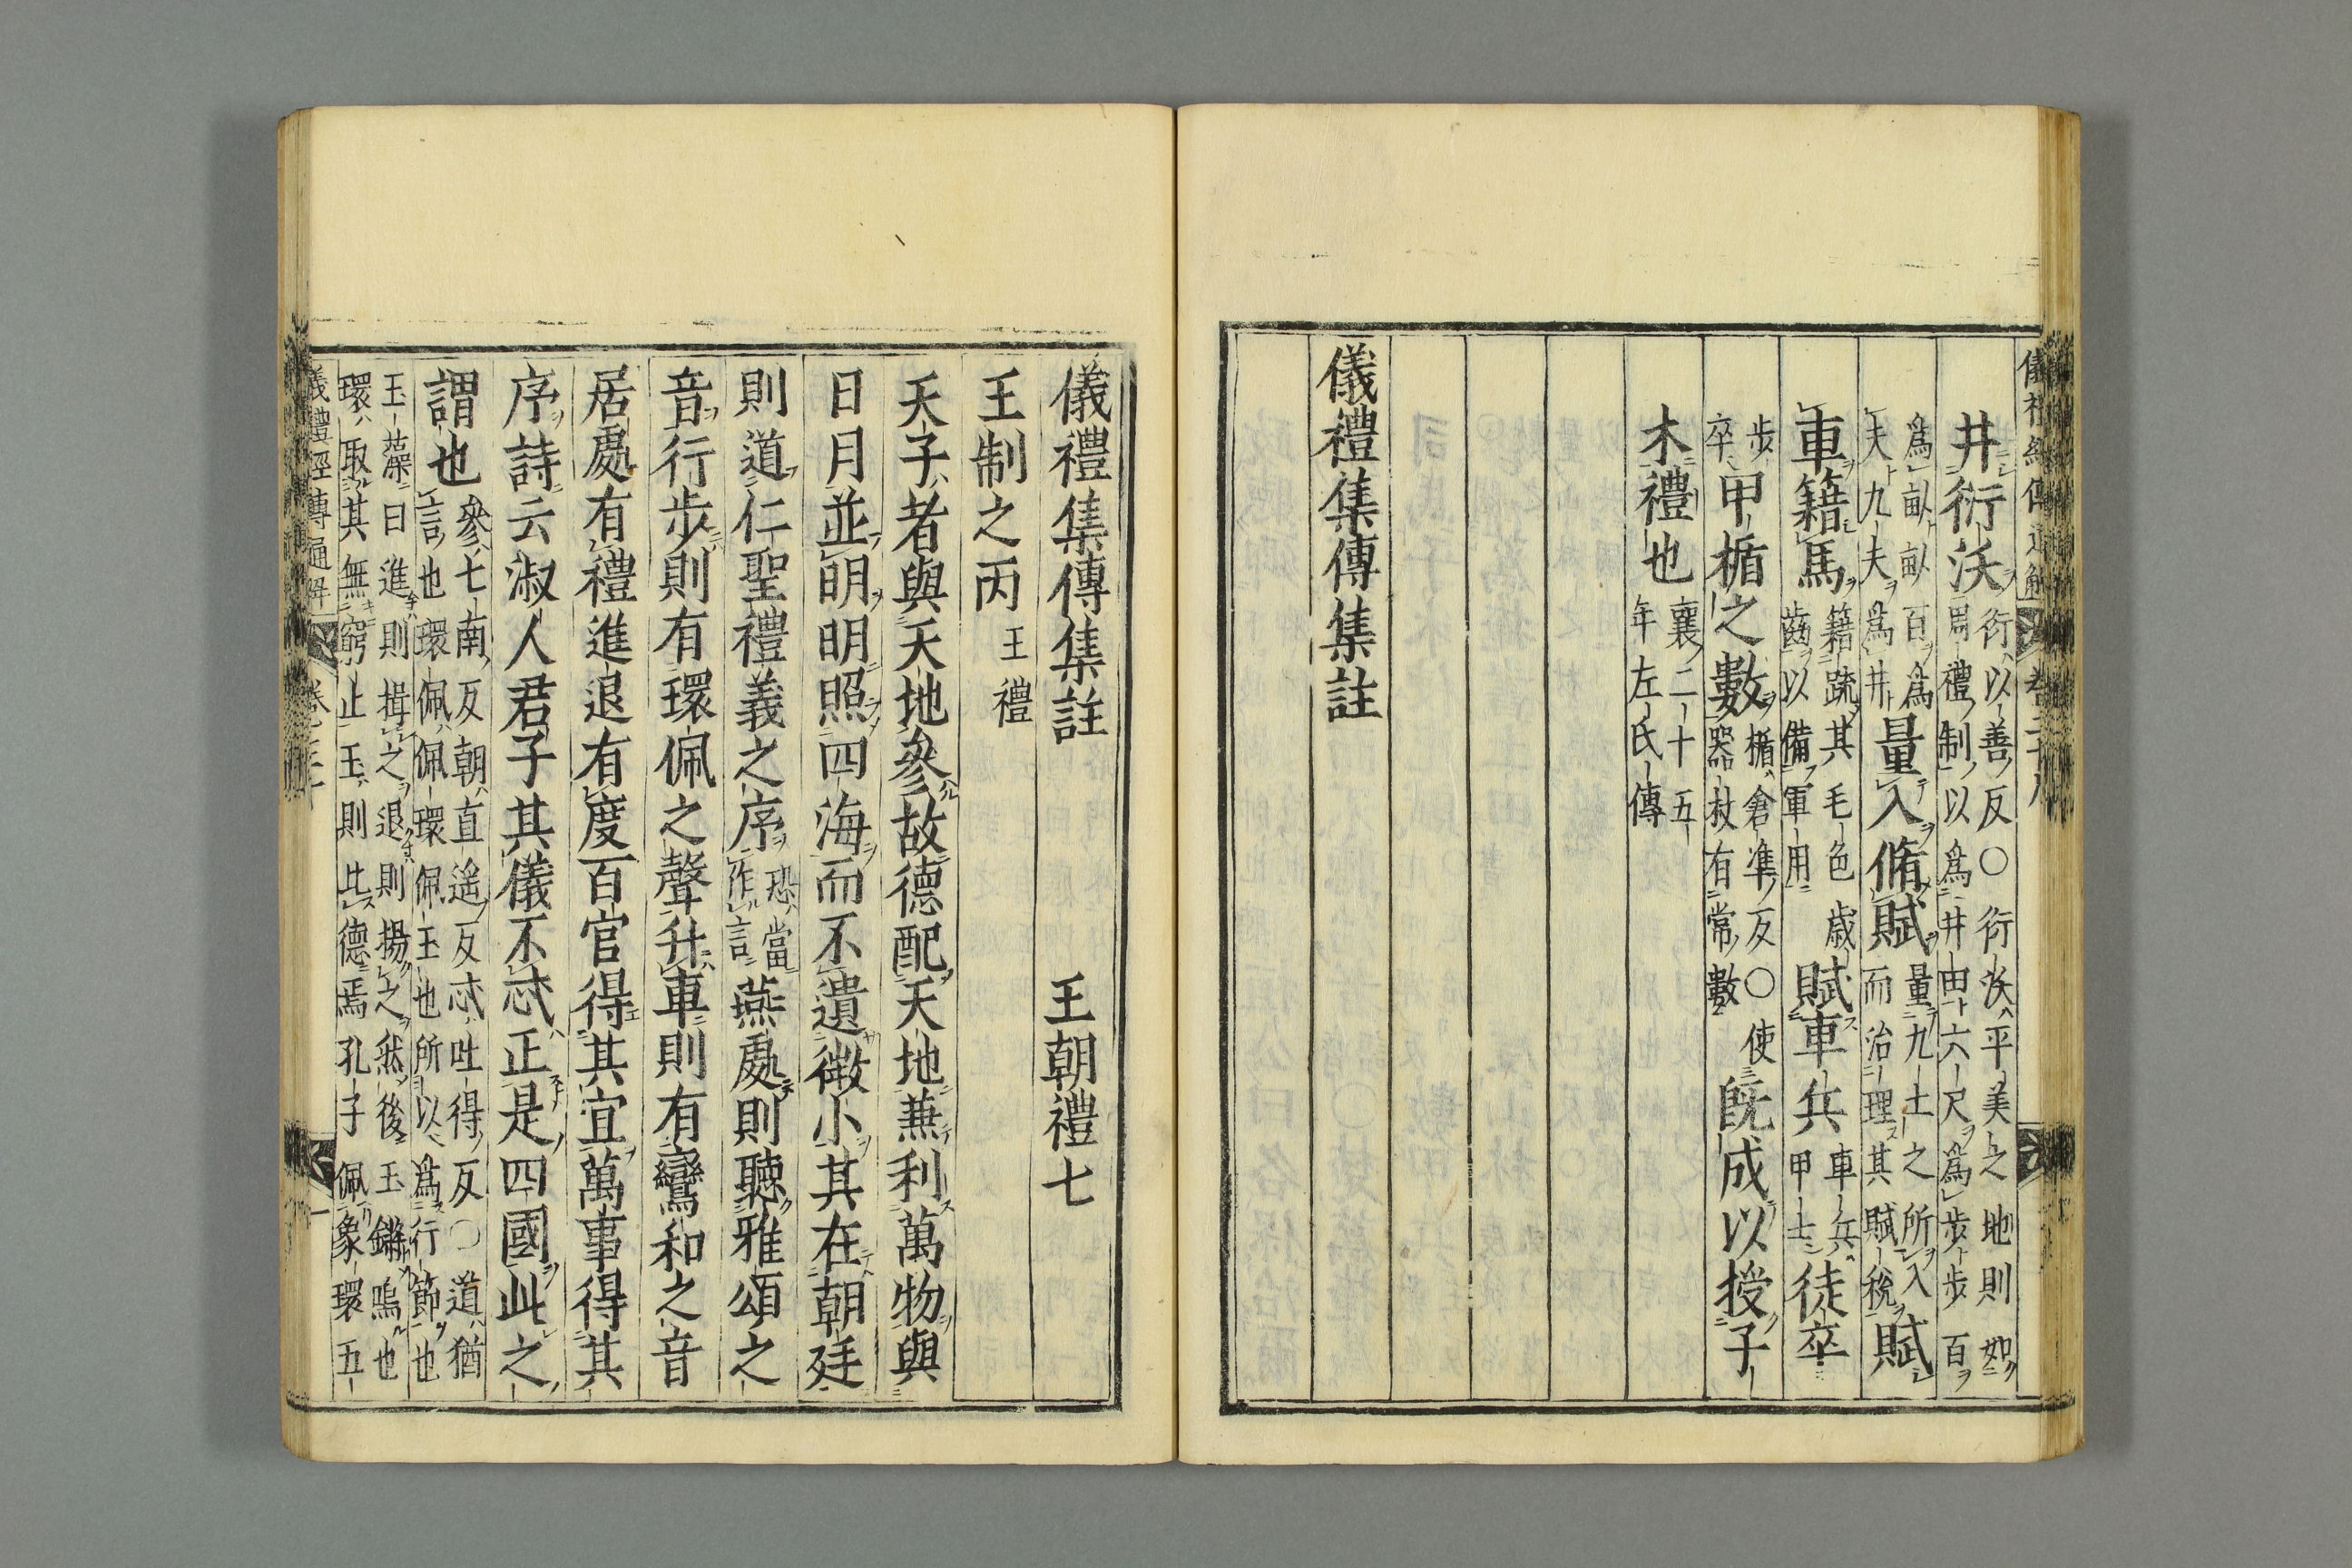 井衍沃衍以善反○衍沃平美之地則如
周禮制以爲井田六尺爲步步百
爲畝畝百爲
夫九夫爲井量入脩賦量九土之所入
而治理其賦稅賦
車籍馬籍疏其毛色歲
齒以備軍用賦車兵車兵
甲士徒卒
步
卒甲楯之數楯食準反○使
器杖有常數既成以授子
木禮也襄二十五
年左氏傳
儀禮集傳集註
儀禮集傳集註 王朝禮七
王制之丙 王禮
天子者與天地參故德配天地蕪利萬物與
日月並明明照四海而不遺微小其在朝廷
則道仁聖禮義之序恐當
作言燕處則聽雅頌之
音行步則有環佩之聲升車則有鸞和之音
居處有禮進退有度百官得其宜萬事得其
序詩云淑人君子其儀不忒正是四國此之
謂也參七南反朝直遙反忒吐得反○道猶
言也環佩佩環佩玉也所以爲行節也
玉藻曰進則揖之退則揚之然後玉鏘鳴也
環取其無窮止玉則比德焉孔子佩象環五